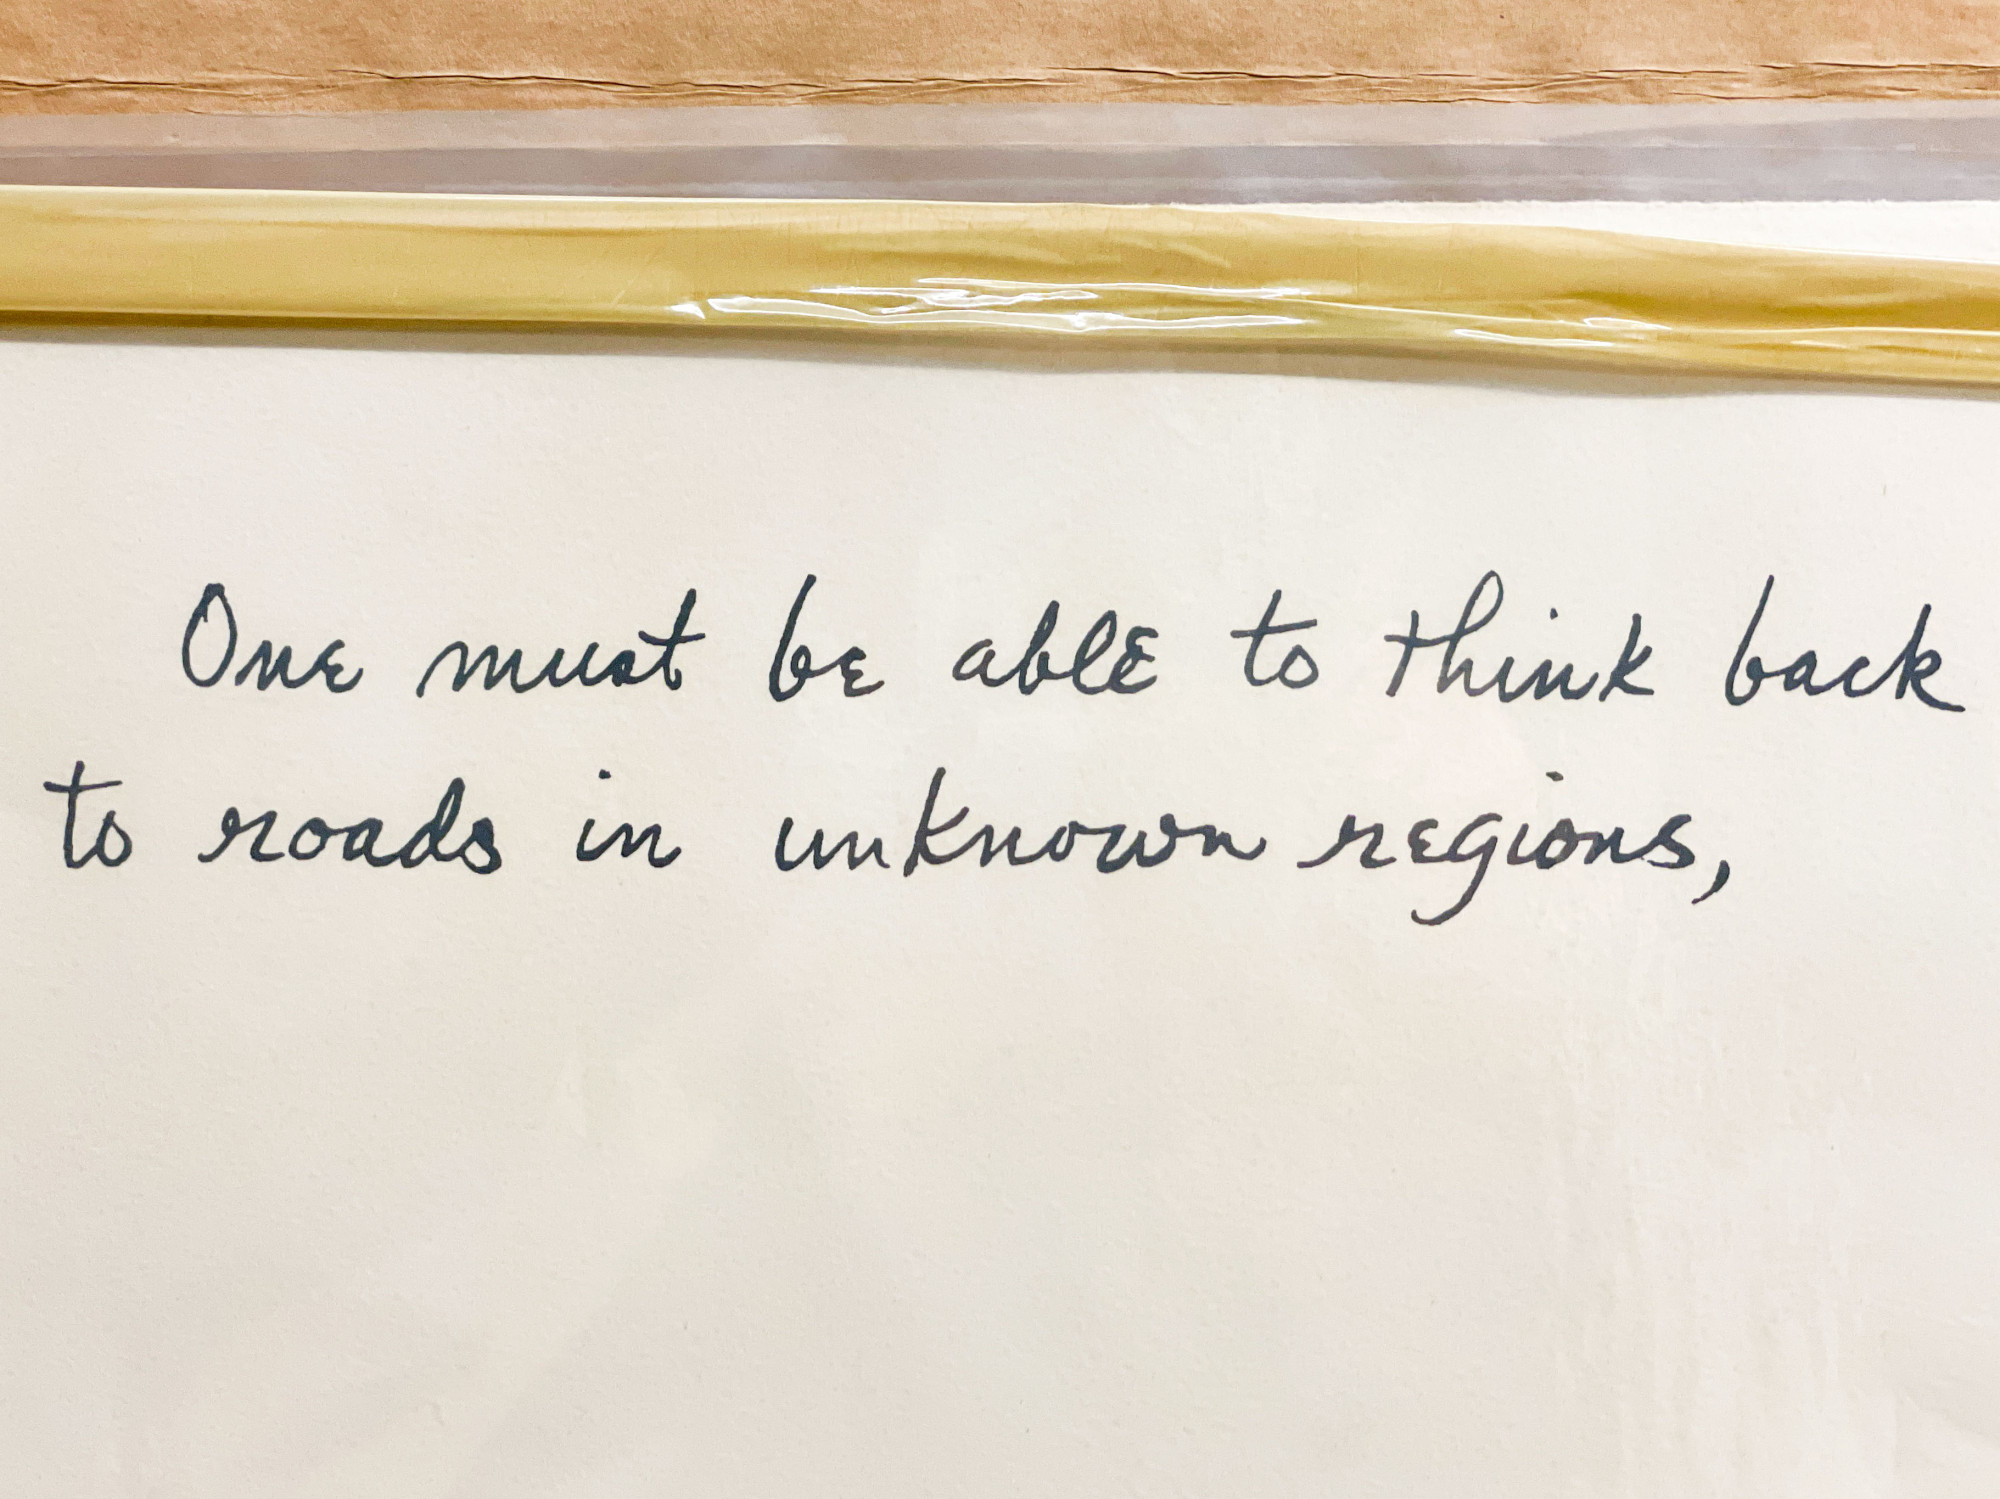 One must be able to think back
to roads in unknown regions,